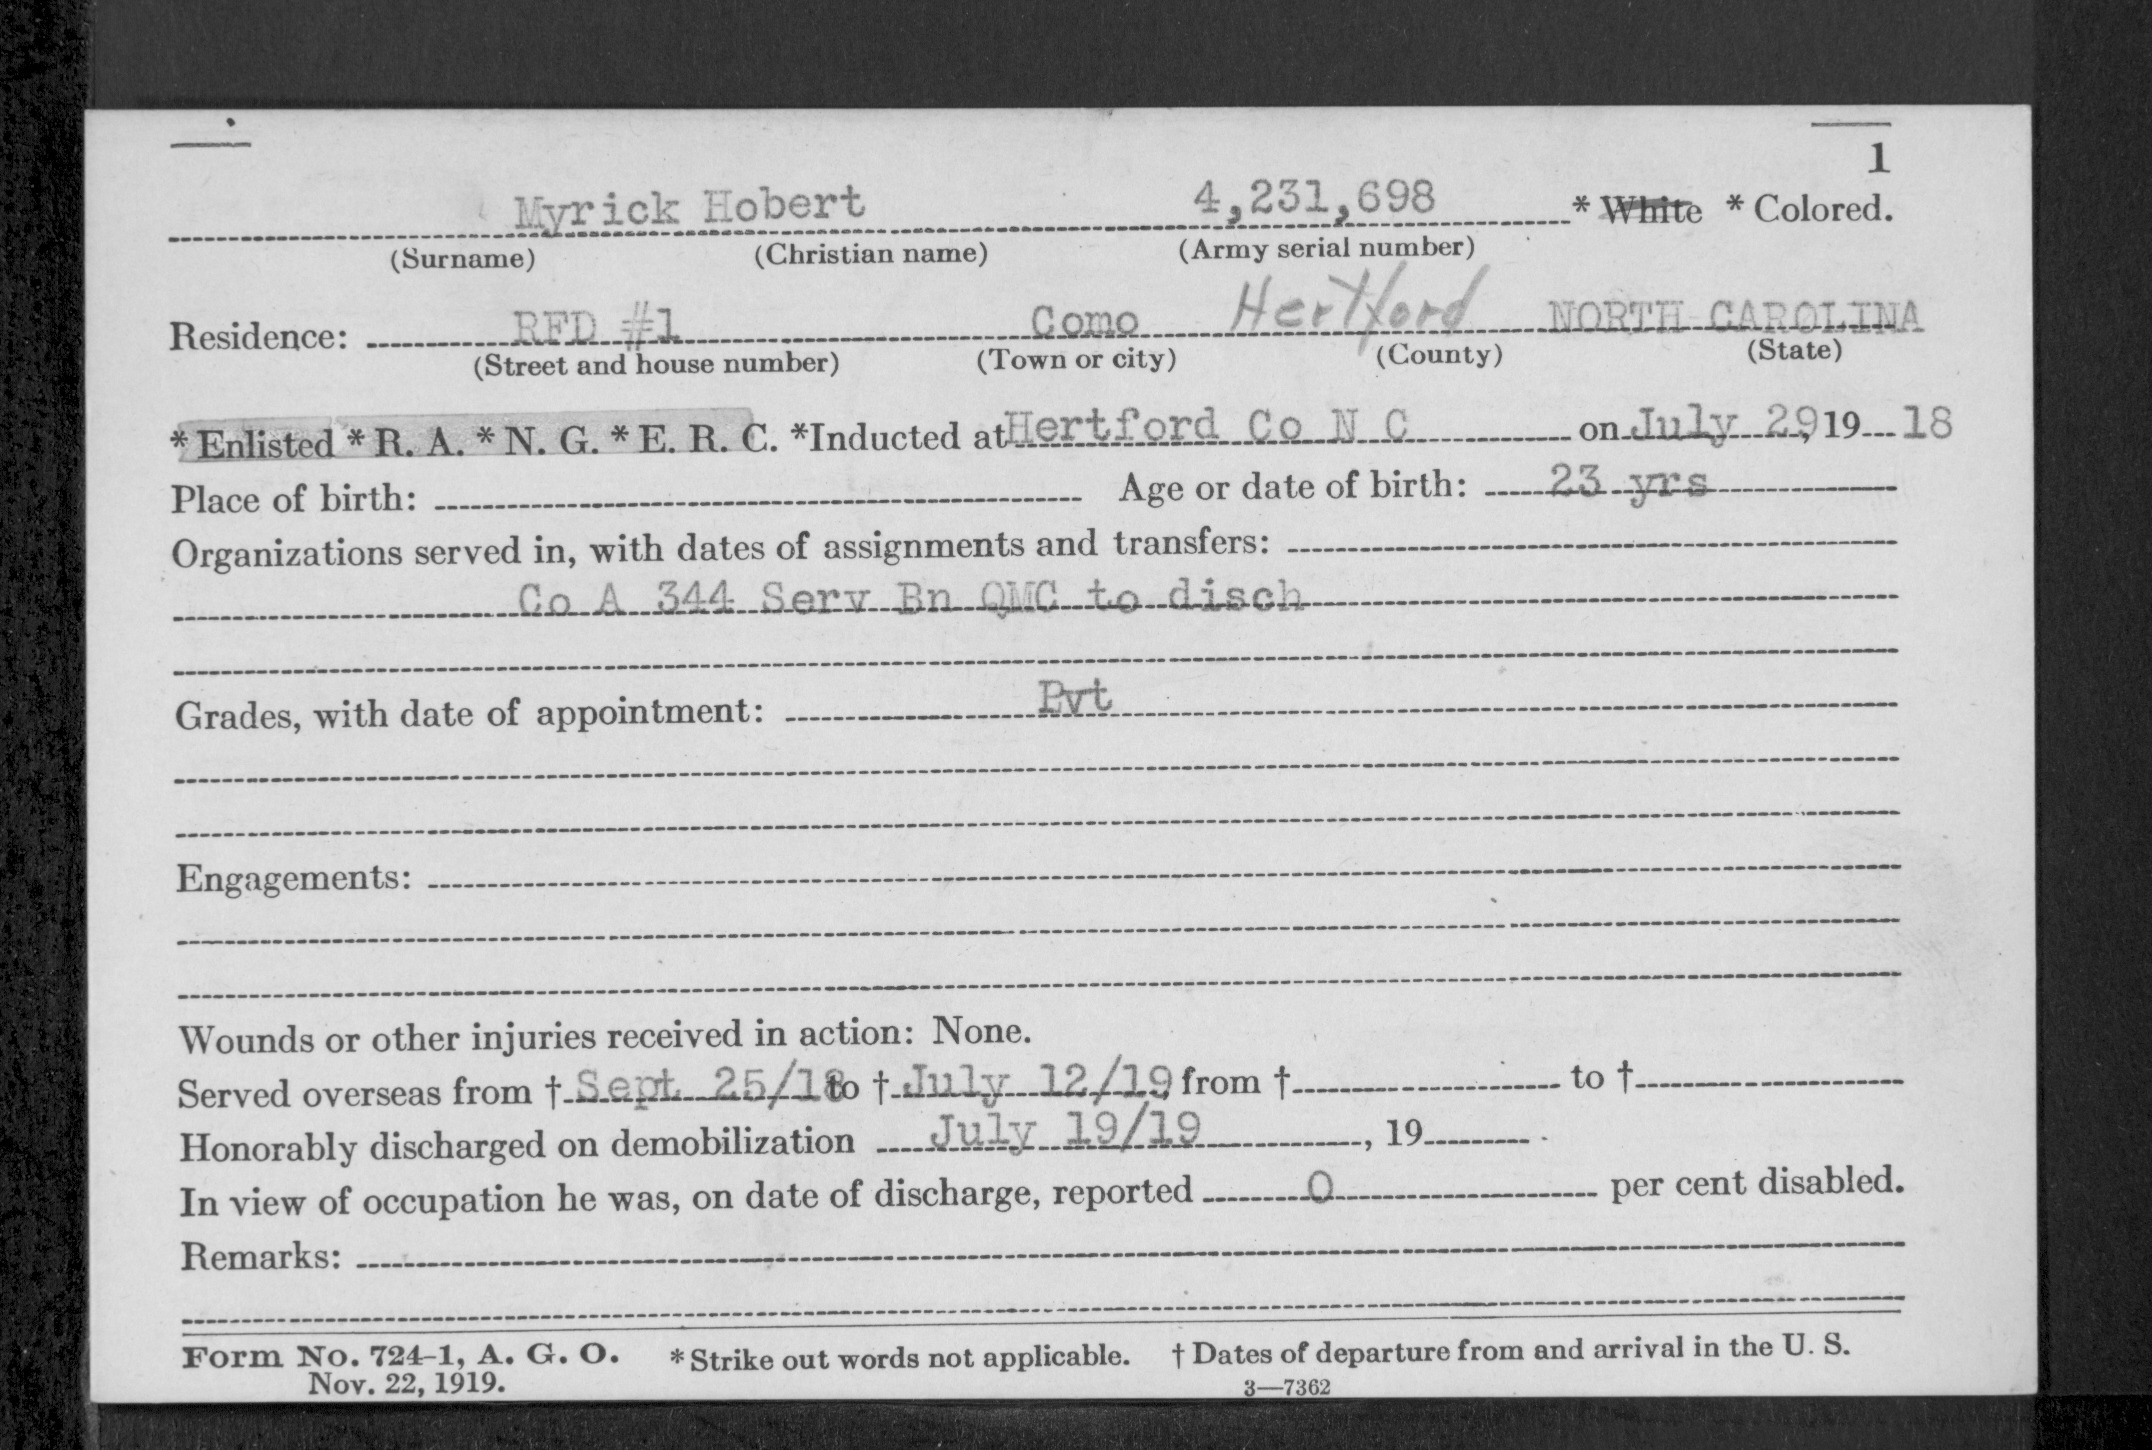 1
Myrick Hobert 4,231,698 * White * Colored.
(Surname) (Christian name) (Army serial number)
Residence: RFD #1 Como Hertford NORTH CAROLINA
(Street and house number) (Town or city) (County) (State)
* Enlisted * R. A. * N. G. * E. R. C. *Inducted at Hertford Co N C on July 29, 19 18
Place of birth: Age or date of birth: 23 yrs
Organizations served in, with dates of assignments and transfers:
Co A 344 Serv Bn QMC to disch
Grades, with date of appointment: Pvt
Engagements:
Wounds or other injuries received in action: None.
Served overseas from † Sept 25/18 to † July 12/19, from † to †
Honorably discharged on demobilization July 19/19, 19 .
In view of occupation he was, on date of discharge, reported 0 per cent disabled.
Remarks:
Form No. 724-1, A. G. O. * Strike out words not applicable. † Dates of departure from and arrival in the U. S.
Nov. 22, 1919. 3—7362